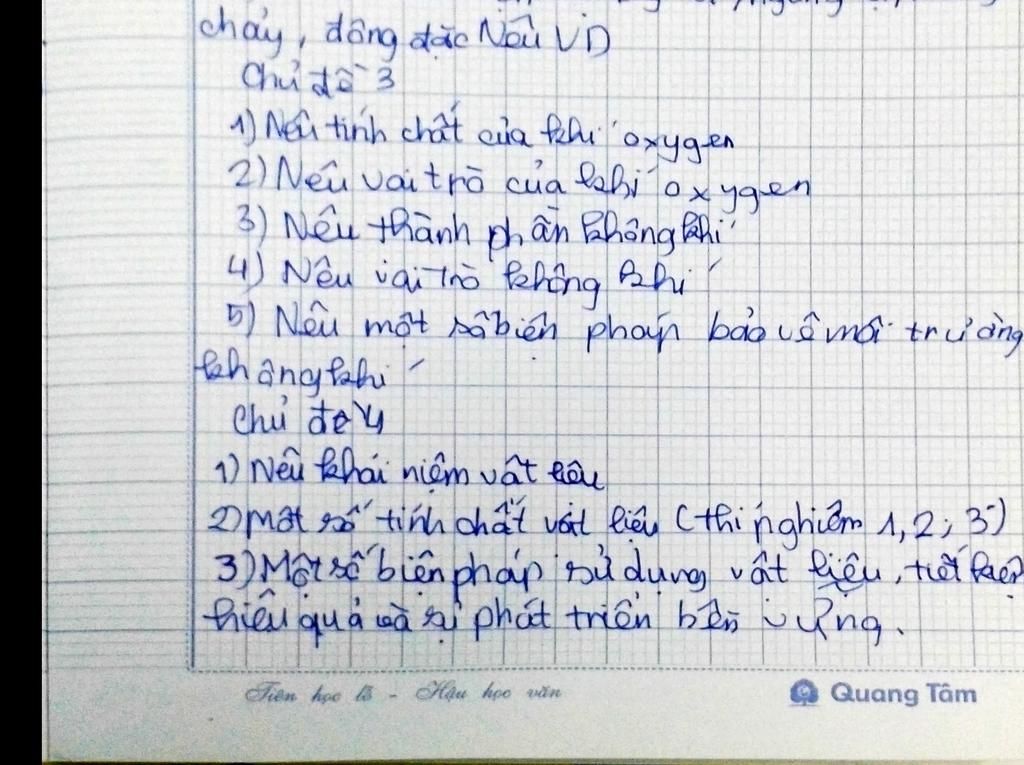 chảy, đông đặc Nêu VD
Chủ đề 3
1) Nêu tính chất của khí oxygen
2) Nêu vai trò của khí oxygen
3) Nêu thành phần không khí
4) Nêu vai trò không khí
5) Nêu một số biên pháp bảo vệ môi trường
không khí
Chủ đề 4
1) Nêu khái niệm vât liêu
2) Một số tính chất vât liệu (thí nghiêm 1, 2, 3)
3) Một số biện pháp sử dụng vât liệu, tiết kiệm
hiêu quả và sự phát triển bền vững.
Tiên học lễ - Hậu học văn
Quang Tâm